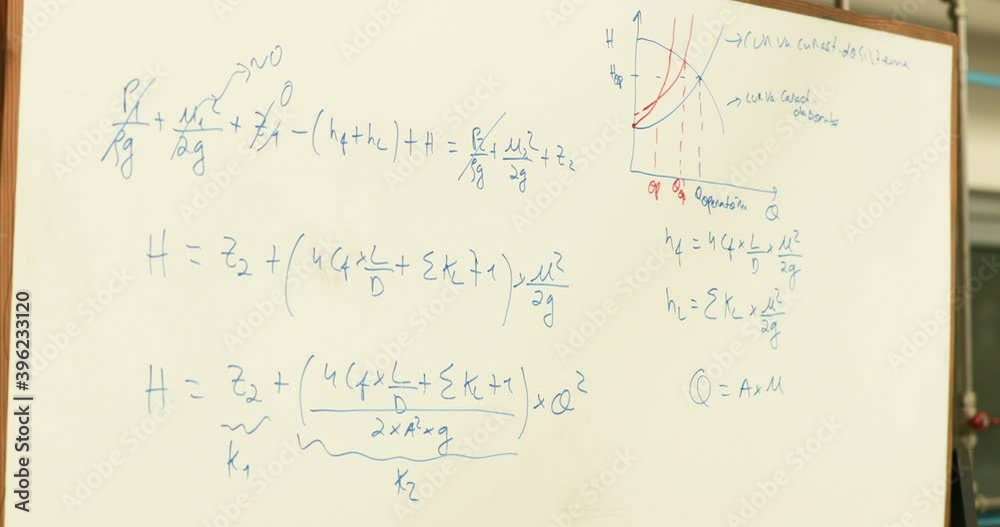 P1/ρg + u1²/2g + z1 - (hf + hL) + H = P2/ρg + u2²/2g + z2
→ ~0
0
H = z2 + (4Cf × L/D + ΣKL + 1) × u²/2g
H = z2 + ((4Cf × L/D + ΣKL + 1)/(2 × A² × g)) × Q²
K1
K2
H
Hop
→ curva caract. do sistema
→ curva caract. da bomba
Qop
Qoperatório
Q
hf = 4Cf × L/D × u²/2g
hL = ΣKL × u²/2g
Q = A × u
Adobe Stock | #396233120